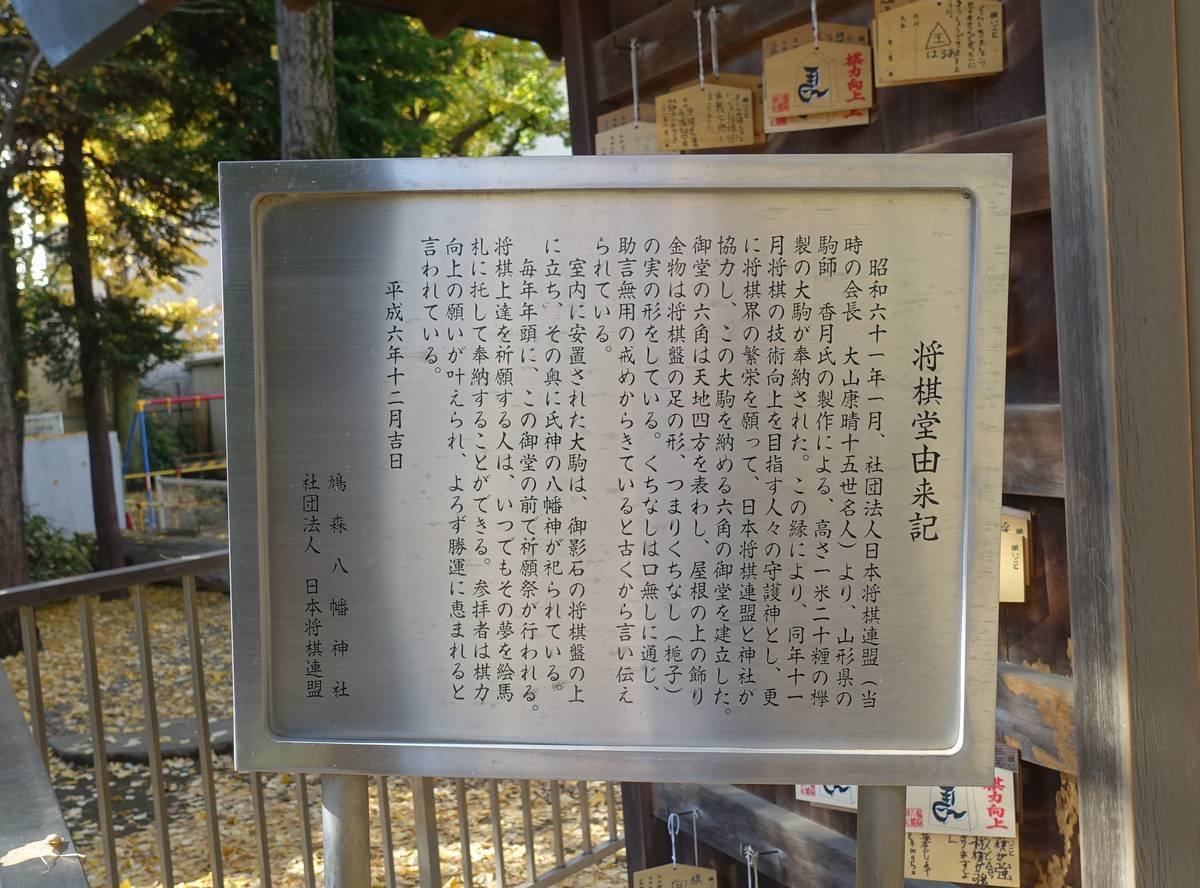 将棋堂由来記
昭和六十一年一月、社団法人日本将棋連盟（当
時の会長　大山康晴十五世名人）より、山形県の
駒師　香月氏の製作による、高さ一米二十糎の欅
製の大駒が奉納された。この縁により、同年十一
月将棋の技術向上を目指す人々の守護神とし、更
に将棋界の繁栄を願って、日本将棋連盟と神社が
協力し、この大駒を納める六角の御堂を建立した。
御堂の六角は天地四方を表わし、屋根の上の飾り
金物は将棋盤の足の形、つまりくちなし（梔子）
の実の形をしている。くちなしは口無しに通じ、
助言無用の戒めからきていると古くから言い伝え
られている。
室内に安置された大駒は、御影石の将棋盤の上
に立ち、その奥に氏神の八幡神が祀られている。
毎年年頭に、この御堂の前で祈願祭が行われる。
将棋上達を祈願する人は、いつでもその夢を絵馬
札に托して奉納することができる。参拝者は棋力
向上の願いが叶えられ、よろず勝運に恵まれると
言われている。
平成六年十二月吉日
鳩森八幡神社
社団法人　日本将棋連盟
棋力向上
願いごと
棋力向上